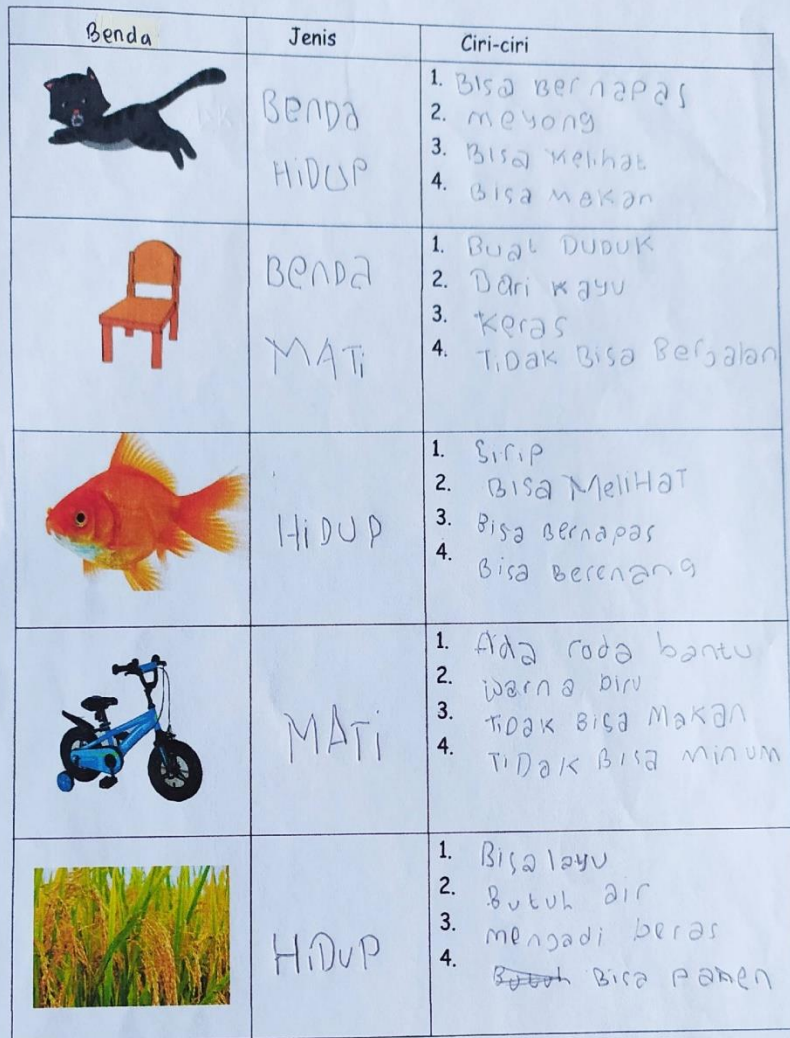 Benda Jenis Ciri-ciri
BenDa HiDUP
1. BIsa Bernapas
2. meyong
3. BIsa melihat
4. Bisa makan
BenDa MATi
1. Buat DUDUK
2. Dari kayu
3. Keras
4. TiDak Bisa Berjalan
HiDUP
1. Sirip
2. BIsa MeliHaT
3. Bisa Bernapas
4. Bisa Berenang
MATi
1. Ada roda bantu
2. warna biru
3. TiDak Bisa Makan
4. TiDak Bisa minum
HiDUP
1. Bisa layu
2. Butuh air
3. mengadi beras
4. Bisa panen